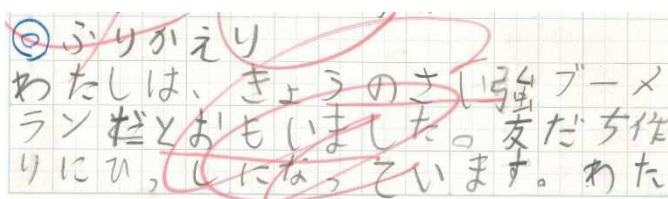 ◎ふりかえり
わたしは、きょうのさい強ブーメ
ランだとおもいました。友だち作
りにひっしになっています。わた